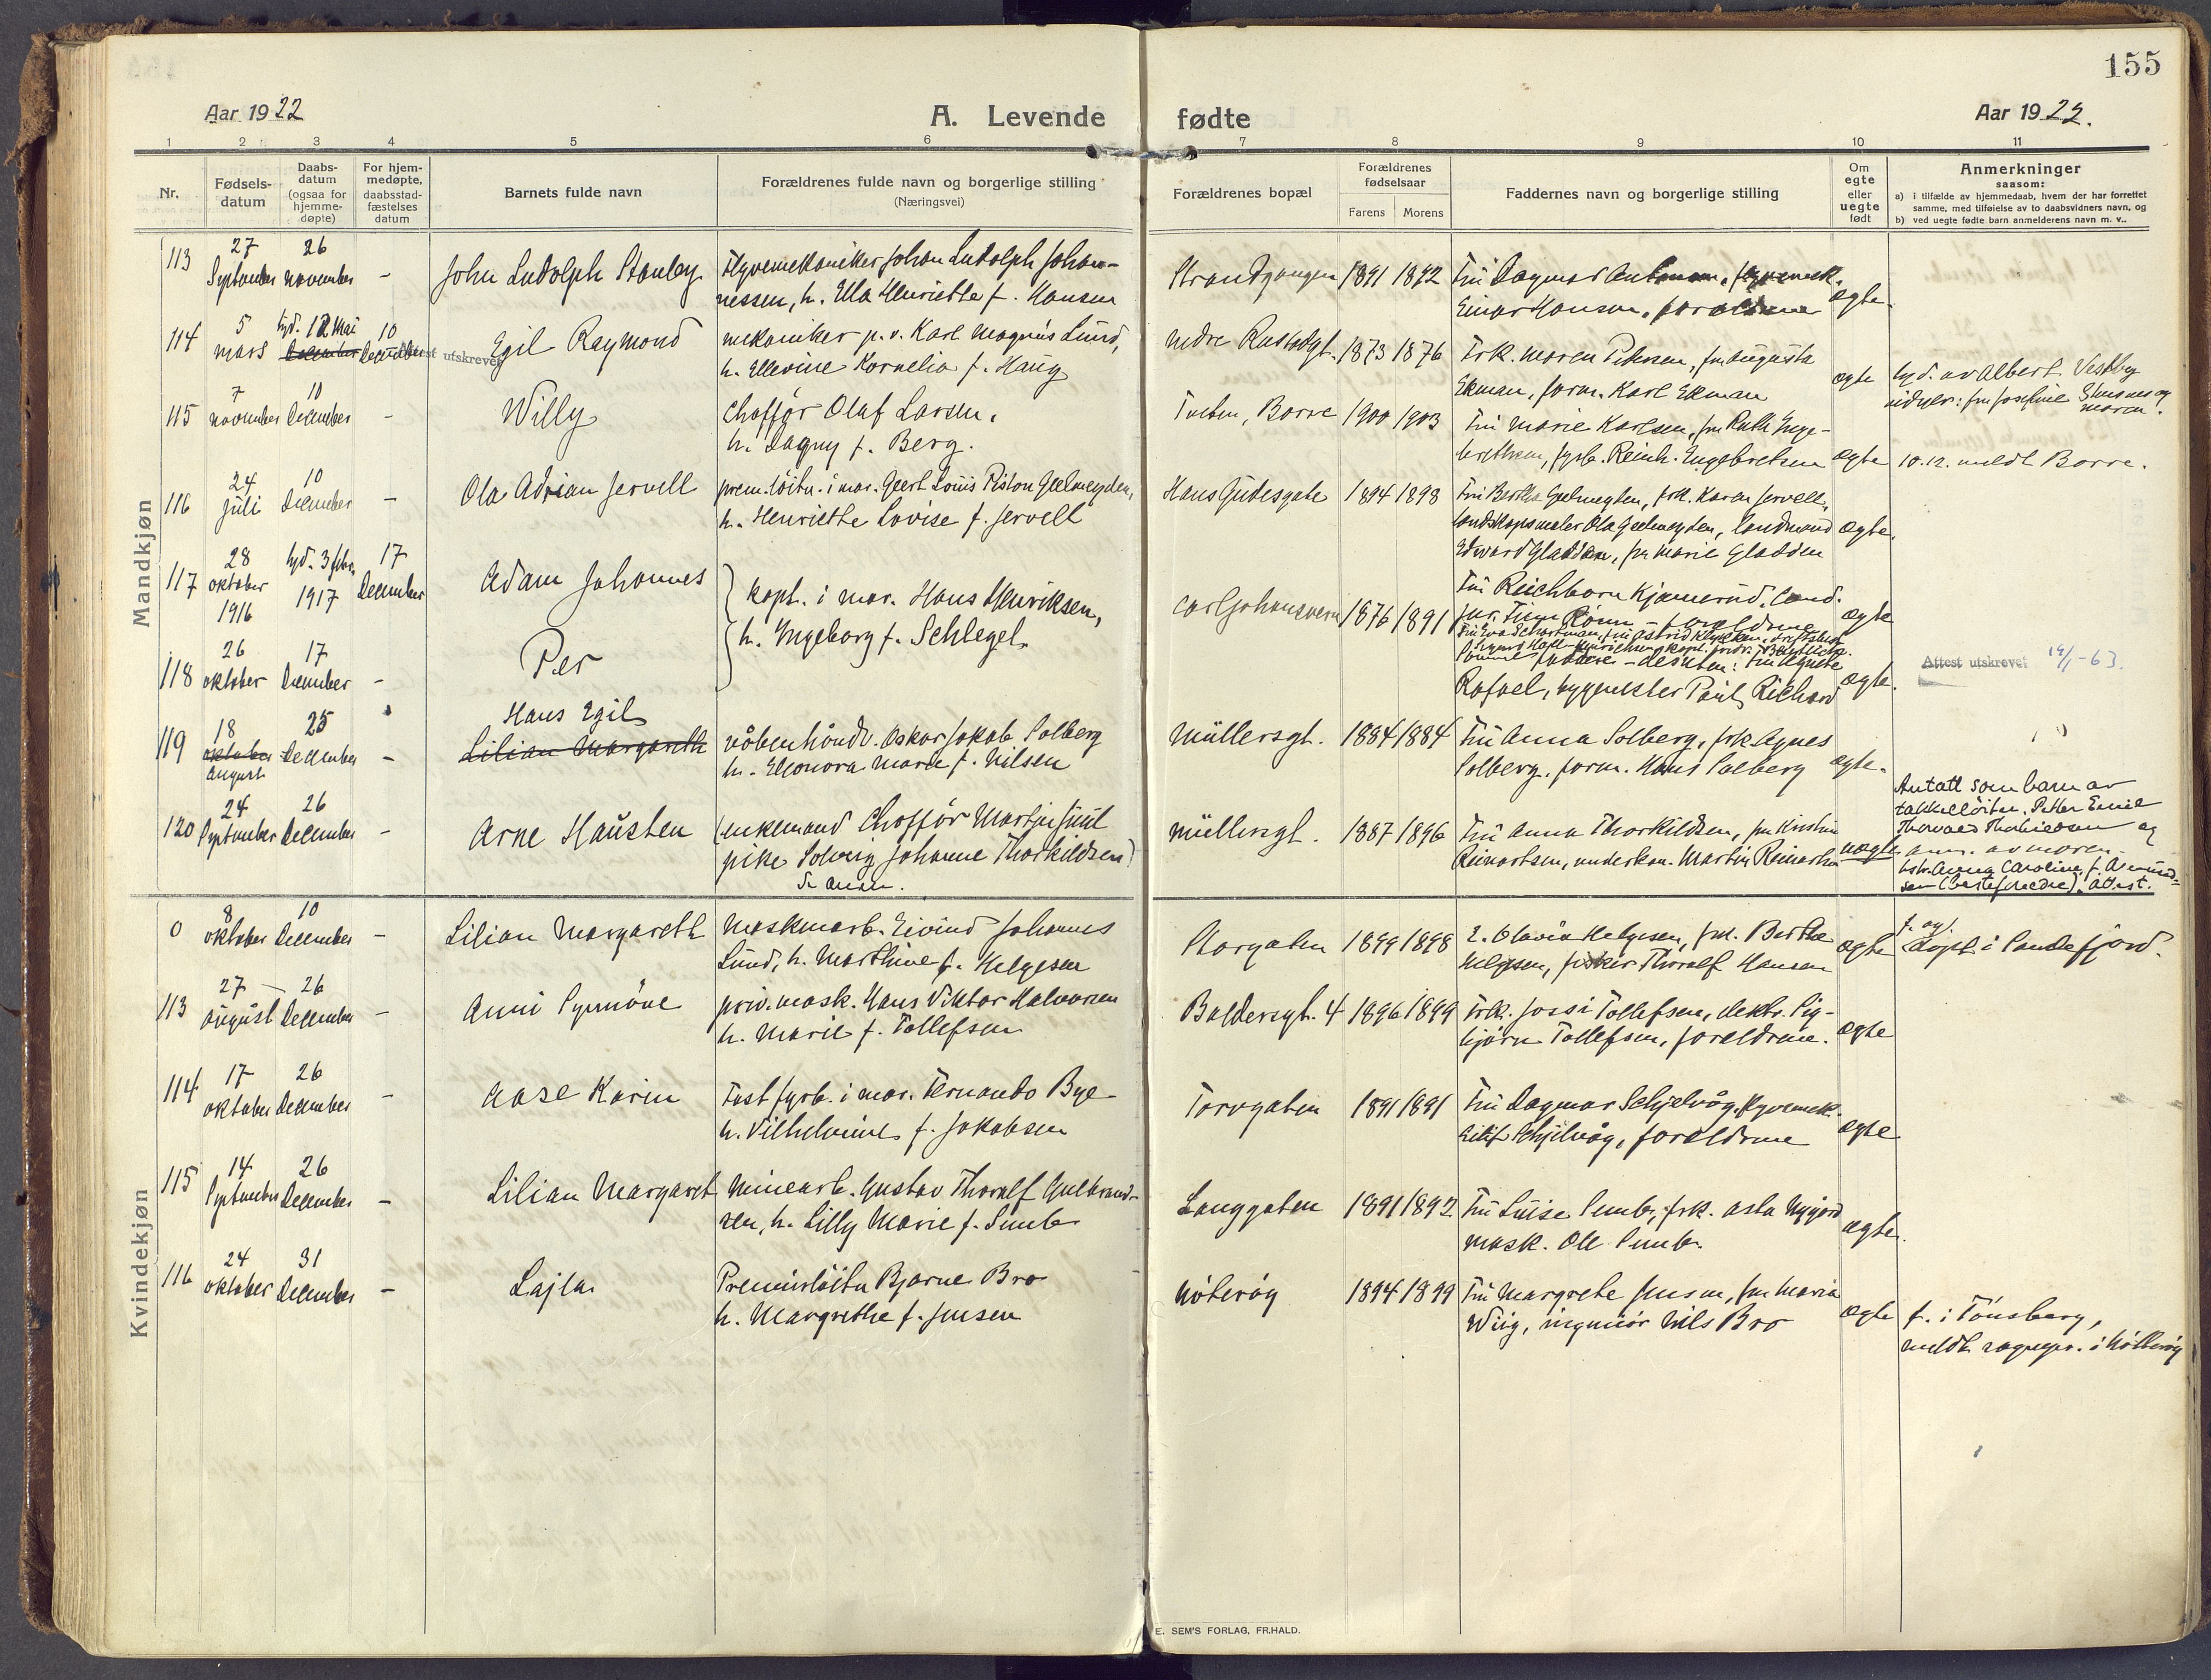 155
Aar 1922
A. Levende fødte
Aar 1922.
1 2 3 4 5 6 7 8 9 10 11
Nr.
Fødsels-
datum
Daabs-
datum
(ogsaa for
hjemme-
døpte)
For hjem-
medøpte,
daabsstad-
fæstelses
datum
Barnets fulde navn
Forældrenes fulde navn og borgerlige stilling
(Næringsvei)
Forældrenes bopæl
Forældrenes
fødselsaar
Farens Morens
Faddernes navn og borgerlige stilling
Om
egte
eller
uegte
født
Anmerkninger
saasom:
a) i tilfælde av hjemmedaab, hvem der har forrettet
samme, med tilføielse av to daabsvidners navn, og
b) ved uegte fødte barn anmelderens navn m. v..
Mandkjøn
113 27 September 26 november - John Ludolph Stanley
Flyvemekaniker Johan Ludolph Johan-
nessen, h. Ella Henriette f. Hansen
Strandgangen 1891 1892
Fru Dagmar
Einar Hansen, forældrene
ægte
114 5 mars hjd. 12 Mai December 10 December
Attest utskrevet
Egil Raymond
mekaniker p.v. Karl Magnus Lund,
h. Ellevine Kornelia f. Haug
nedre Rustadgt. 1873 1876
Frk. Maren Petersen, fru Augusta
Ekman, form. Karl Ekman
ægte
hjd. av Albert Vestby
vidner: fru Josefine
moren.
115 7 november 10 December - Willy
Chaffør Olaf Larsen,
h. Dagny f. Berg.
Borre 1900 1903
Fru Marie Karlsen, fru Ruth Enge-
brethsen, fyrb. Reinh. Engebretsen
ægte
10.12. meldt Borre.
116 24 juli 10 December - Ola Adrian Jervell
prem.løitn. i mar. Geert Louis Piston Geelmeyden,
h. Henriette Lovise f. Jervell
Hans Gudesgate 1894 1898
Fru Bertha Geelmeyden, frk. Karen Jervell,
landskapsmaler Ola Geelmeyden, landmand
Edvard Gladden, fru Marie Gladden
ægte.
117 28 oktober 1916 hjd. 3 febr. 1917 17 December
Adam Johannes
kapt. i mar. Hans Henriksen,
h. Ingeborg f. Schlegel
Carljohansvern 1876 1891
Fru Reichborn Kjennerud, Cand.
jur. Rønn - forældrene
ægte
118 26 oktober 17 December - Per
Samme faddere - desuten: Fru Agnete
Rafael, byggmester Paul Richard
ægte.
Attest utskrevet 14/1-63.
119 18 oktober august 25 December -
Hans Egil
Lilian Margareth
våbenhåndv. Oskar Jakob Solberg
h. Eleonora Marie f. Nilsen
Müllersgt. 1884 1884
Fru Anna Solberg, frk. Agnes
Solberg, form. Hans Solberg
ægte.
120 24 September 26 December - Arne Hausten
(enkemand Chaffør Martin Juul
pike Solveig Johanne Thorkildsen)
Se anm.
Müllersgt. 1887 1896
Fru Anna Thorkildsen, fru Kristine
Reinertsen, underkan. Martin Reinertsen
uægte
Antatt som barn av
takkelløitn. Petter Emil
Thorvald Thorkildsen og
anm. av moren
hstr. Anna Caroline, f. Asmund-
sen (besteforeldre). Attest.
Kvindekjøn
0 8 oktober 10 December - Lilian Margareth
Maskinarb. Eivind Johannes
Lund, h. Marthine f. Helgesen
Storgaten 1899 1898
E. Olavia Helgesen, frk. Berthe
Helgesen, fisker Thoralf Hansen
ægte
f. og døpt i Sandefjord.
113 27 august 26 December - Anni Synnöve
priv. mask. Hans Viktor Halvorsen
h. Marie f. Tollefsen
Baldersgt. 4 1896 1899
Frk. Jossi Tollefsen, elektr. Sig-
bjørn Tollefsen, forældrene.
ægte
114 17 oktober 26 December - Aase Karin
Fast fyrb. i mar. Fernando Bye
h. Vilhelmine f. Jakobsen
Torvgaten 1891 1891
Fru Dagmar Schjelvåg, flyvemek.
Eilif Schjelvåg, forældrene
ægte
115 14 September 26 December - Lilian Margaret
Minearb. Gustav Thoralf Gulbrand-
sen, h. Lilly Marie f. Sundb
Langgaten 1891 1892
Fru Luise Sundb, frk. Asta Nygård
mask. Ole Sundb.
ægte.
116 24 oktober 31 December - Lajla
Premierløitn Bjarne Bro
h. Margrethe f. Jensen
Nøterøy 1894 1899
Fru Margrete Jensen, fru Maria
Wiig, ingeniør Nils Bro
ægte
f. i Tønsberg,
meldt sogneprd. i Nøtterøy
E. SEM'S FORLAG, FR.HALD.